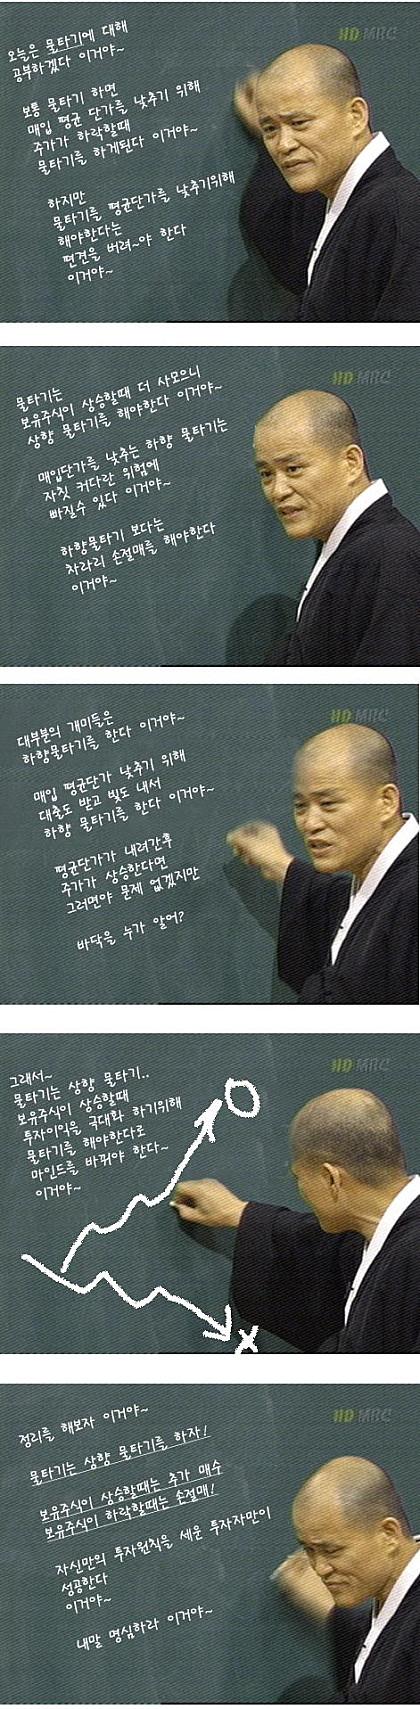 오늘은 물타기에 대해
공부하겠다 이거야~
보통 물타기 하면
매입 평균 단가를 낮추기 위해
주가가 하락할때
물타기를 하게된다 이거야~
하지만
물타기를 평균단가를 낮추기위해
해야한다는
편견을 버려~야 한다
이거야~
HD MBC
물타기는
보유주식이 상승할때 더 사모으니
상향 물타기를 해야한다 이거야~
매입단가를 낮추는 하향 물타기는
자칫 커다란 위험에
빠질수 있다 이거야~
하향물타기 보다는
차라리 손절매를 해야한다
이거야~
HD MBC
대부분의 개미들은
하향물타기를 한다 이거야~
매입 평균단가 낮추기 위해
대출도 받고 빚도 내서
하향 물타기를 한다 이거야~
평균단가가 내려간후
주가가 상승한다면
그러면야 문제 없겠지만
바닥을 누가 알어?
HD MBC
그래서~
물타기는 상향 물타기..
보유주식이 상승할때
투자이익을 극대화 하기위해
물타기를 해야한다로
마인드를 바꿔야 한다~
이거야~
HD MBC
정리를 해보자 이거야~
물타기는 상향 물타기를 하자!
보유주식이 상승할때는 추가 매수
보유주식이 하락할때는 손절매!
자신만의 투자원칙을 세운 투자자만이
성공한다
이거야~
내말 명심하라 이거야~
HD MBC